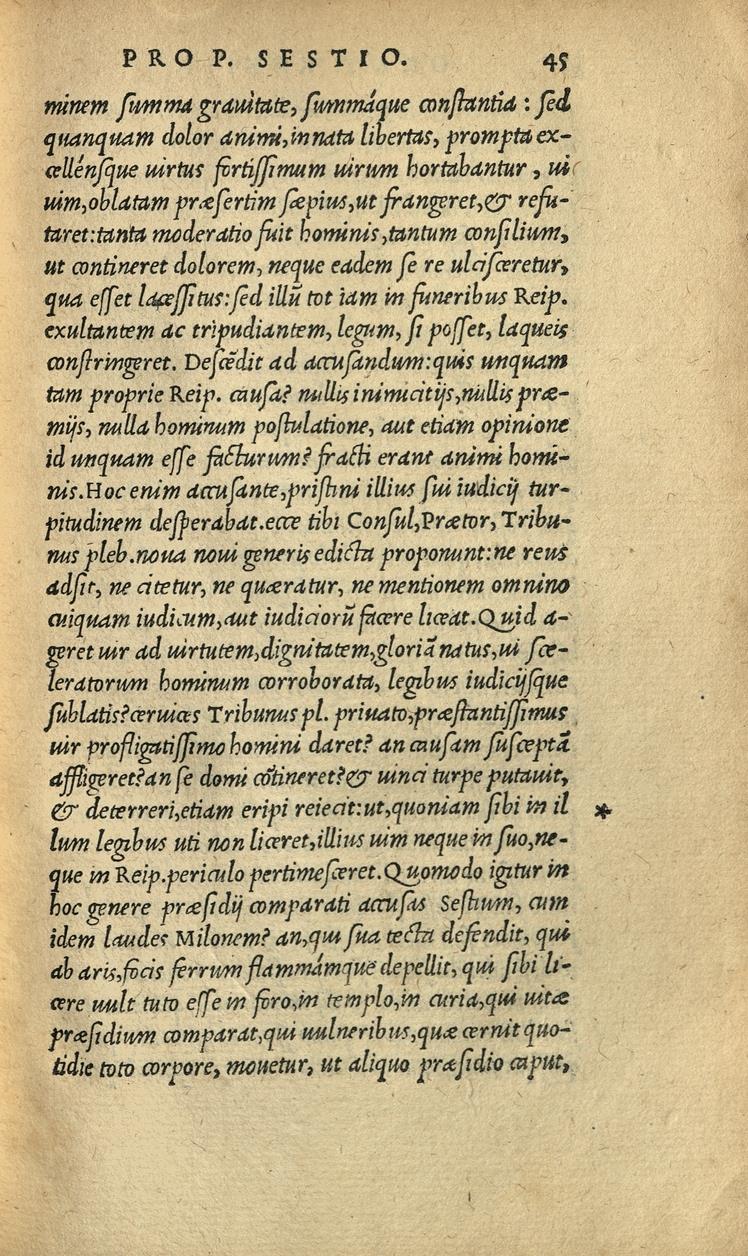 PRO P. SESTIO. 45
minem ſumma grauitate, ſummáque conſtantia : ſed
quanquam dolor animi, innata libertas, prompta ex-
cellénſque uirtus fortiſſimum uirum hortabantur , ui
uim, oblatam præſertim ſæpius, ut frangeret, & refu-
taret: tanta moderatio fuit hominis, tantum conſilium,
ut contineret dolorem, neque eadem ſe re ulciſceretur,
qua eſſet laceſſitus: ſed illū tot iam in funeribus Reip.
exultantem ac tripudiantem, legum, ſi poſſet, laqueis
conſtringeret. Deſcēdit ad accuſandum: quis unquam
tam proprie Reip. cauſa? nullis inimicitijs, nullis præ-
mijs, nulla hominum poſtulatione, aut etiam opinione
id unquam eſſe facturum? fracti erant animi homi-
nis. Hoc enim accuſante, priſtini illius ſui iudicij tur-
pitudinem deſperabat. ecce tibi Conſul, Prætor, Tribu-
nus pleb. noua noui generis edicta proponunt: ne reus
adſit, ne citetur, ne quæratur, ne mentionem omnino
cuiquam iudicum, aut iudiciorū facere liceat. Quid a-
geret uir ad uirtutem, dignitatem, gloriā natus, ui ſce-
leratorum hominum corroborata, legibus iudicijſque
ſublatis? ceruices Tribunus pl. priuato, præſtantiſſimus
uir profligatiſſimo homini daret? an cauſam ſuſceptā
affligeret? an ſe domi cōtineret? & uinci turpe putauit,
& deterreri, etiam eripi reiecit: ut, quoniam ſibi in il *
lum legibus uti non liceret, illius uim neque in ſuo, ne-
que in Reip. periculo pertimeſceret. Quomodo igitur in
hoc genere præſidij comparati accuſas Seſtium, cum
idem laudes Milonem? an, qui ſua tecta defendit, qui
ab aris, focis ferrum flammámque depellit, qui ſibi li-
cere uult tuto eſſe in foro, in templo, in curia, qui uitæ
præſidium comparat, qui uulneribus, quæ cernit quo-
tidie toto corpore, mouetur, ut aliquo præſidio caput,